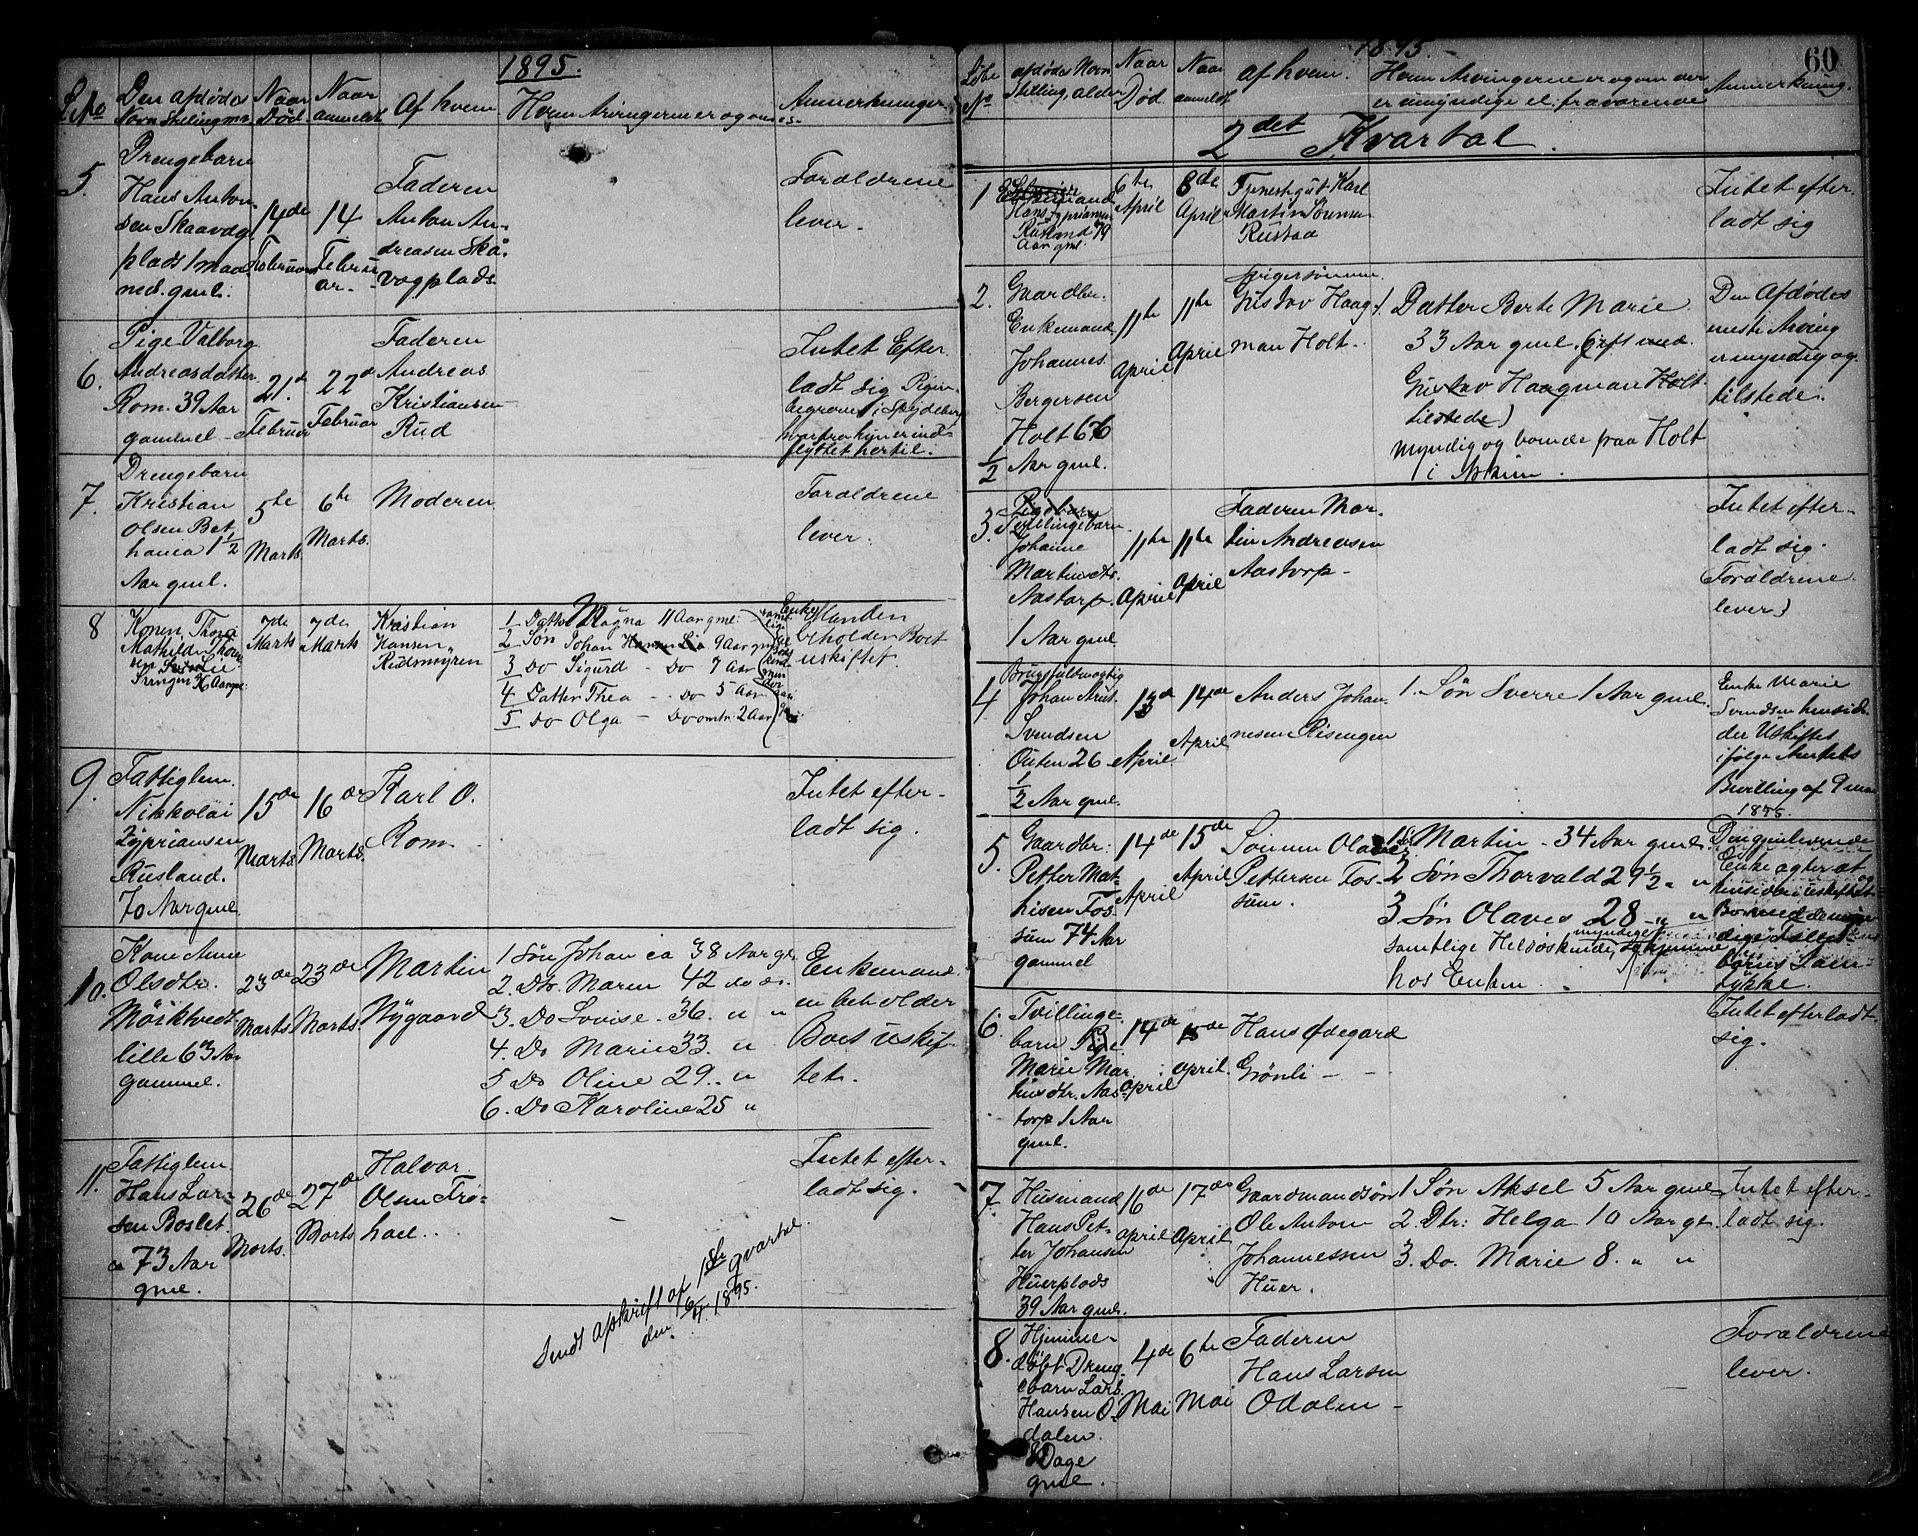 1895.
L. No
Den afdødes
Navn Stilling m.
Naar
Død.
Naar
anmeldt
Af hvem
Hvem Arvingerne er og
Anmerkninger
5.
Drengebarn
Hans Anton-
sen Skaavog
plads 1 maa
ned. gml.
14de
Februar
14
Febru
ar.
Faderen
Anton An-
dreasen Skå-
vogplads.
Forældrene
lever.
6.
Pige Valborg
Andreasdatter
Rom. 39 Aar
gammel
21.
Februar
22
Februar
Faderen
Andreas
Kristiansen
Rud
Intet Efter
ladt sig Pigen
begraves i Spydeberg
hvorfra hun er ind
flyttet hertil.
7.
Drengebarn
Kristian
Olsen Bet
hania 1 1/2
Aar gml.
5te
Marts.
6te
Marts.
Moderen
Forældrene
lever.
8
Konen Thora
Mathilde
Lie
7de
Marts
7de
Marts
Kristian
Hansen
Rudsmyren
1 Datter Magna 11 Aar gml.
2 Søn Johan Hansen Lie 9 Aar gml
3 Do Sigurd - Do 7 Aar
4 Datter Thea - Do 5 Aar
5 Do Olga - Do omtr. 2 Aar
Enkemanden
beholder Boet
uskiftet.
9.
Fattiglem
Nikkolai
Zypriansen
Rusland.
70 Aar gml.
15de
Marts
16de
Marts.
Karl O.
Rom.
Intet efter-
ladt sig.
10.
Kone Anne
Olsdtr.
Mørktvedt
lille 63 Aar
gammel.
23de
Marts
23de
Marts.
Martin
Nygaard
1 Søn Johan ca 38 Aar gl.
2. Dtr. Maren 42 do
3. Do Lovise - 36. " "
4. Do Marie 33. "
5 Do Oline 29. "
6. Do Karoline 25 "
Enkemand
en beholder
Boet uskif-
tet.
11.
Fattiglem
Hans Lar-
sen Boslet.
ca 73 Aar
gml.
26de
Marts.
27de
Marts
Halvor
Olsen Frø-
hael..
Intet efter-
ladt sig.
Sendt afskrift af 1ste qvartal
den 16/4 1895.
1895.
60
Løbe
No
afdødes Navn
Stilling, alder
Naar
Død.
Naar
anmeldt
af hvem.
Hvem Arvingerne er og om der
er umyndige el. fraværende
Anmerkning.
2det Kvartal.
1
Hans Zypriansen
Rusland 79
Aar gml.
6te
April
8de
April
Tjenestgut Karl
Martin Sørensen
Rustad
Intet efter
ladt sig
2.
Gaardbr.
Enkemand
Johannes
Bergersen
Holt 66
1/2 Aar gml.
11te
April
11te
April
Svigersønnen
Gustav Haag
man Holt.
1. Datter Berte Marie
33 Aar gml. Gift med
Gustav Haagman Holt
tilstede)
myndig og boende paa Holt
i Askim.
Den Afdødes
eneste Arving
er myndig og
tilstede.
3.
Pigebarn
Tvillingebarn
Johanne
Martinsdtr.
Aastorp.
1 Aar gml.
11te
April
11te
April
Faderen Mar-
tin Andreasen
Aastorp-
Intet efter-
ladt sig.
Forældrene
lever)
4
Brugsfuldmægtig
Johan Aust.
Svendsen
Outen 26
1/2 Aar gml.
13de
April
14de
April
Anders Johan-
nesen Risengen
1. Søn Sverre 1 Aar gml.
Enke Marie
Svendsen hensid-
der Uskiftet
ifølge Amtets
Bevilling af 9 mai
1895.
5
Gaardbr:
Petter Mat-
hisen Fos-
sum 74 Aar
gammel
14de
April
15de
April
Sønnen Olaves
Pettersen Fos-
sum.
1 Martin - 34 Aar gml
2 Søn Thorvald 29 1/2 " "
3. Søn Olaves 28 " "
samtlige Helsøskende, myndige og hjemme
hos Enken.
Den gjenlevende
Enke agter at
hensidde i uskiftet
6.
Tvillinge-
barn Pige
Marie Mar-
tinsdtr. Aas-
torp 1 Aar
gml.
14de
April
15de
April.
Hans Ødegard
Grønli -
Intet efterladt
sig.
7.
Husmand
Hans Pet-
ter Johansen
Huerplads
39 Aar gml.
16de
April
17de
April
Gaardmandsøn
Ole Anton
Johannessen
Huer.
1 Søn Aksel 5 Aar gml.
2. Dtr: Helga 10 Aar gl.
3. Do. Marie 8. " "
Intet efter-
ladt sig.
8.
Hjemme-
døbt Dreng
ebarn Lars
Hansen O-
dalen.
Dage
gml.
4de
Mai
6te
Mai
Faderen
Hans Larsen
Odalen -
Forældrene
lever.